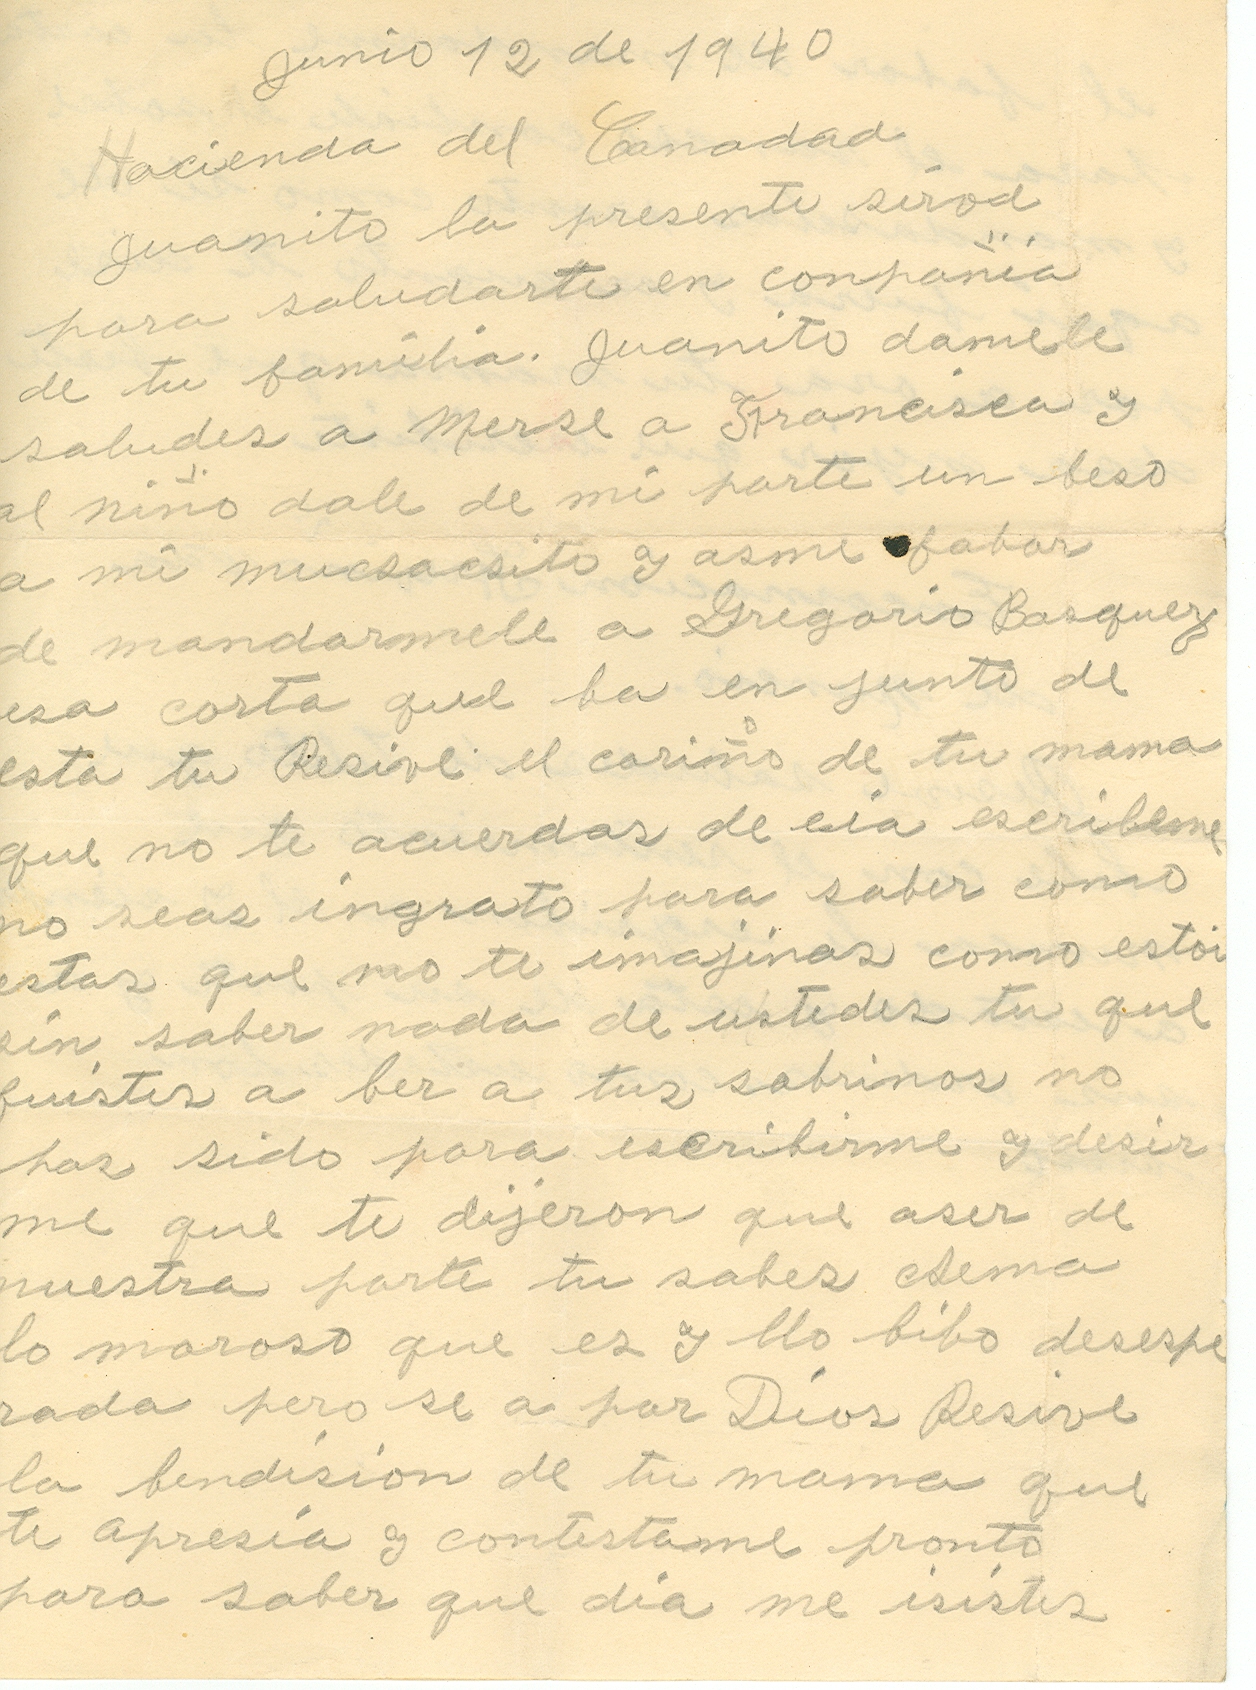 Junio 12 de 1940
Hacienda del Canadad
Juanito la presente sirod
para saludarte en conpañia
de tu familia. Juanito damele
saludes a Merse a Francisca y
al niño dale de mi parte un beso
a mi mucsacsito y asme fabor
de mandarmele a Gregorio Basquez
esa carta que ba en junto de
esta tu Resive el cariño de tu mama
que no te acuerdas de eia escribeme
no seas ingrato para saber como
estas que no te imajinas como estoi
sin saber nada de ustedes tu que
fuistes a ber a tus sobrinos no
has sido para escribirme y desir
me que te dijeron que aser de
nuestra parte tu sabes
lo moroso que es y llo bibo desespe
rada pero se a por Dios Resive
la bendision de tu mama que
te apresia y contestame pronto
para saber que dia me isistes